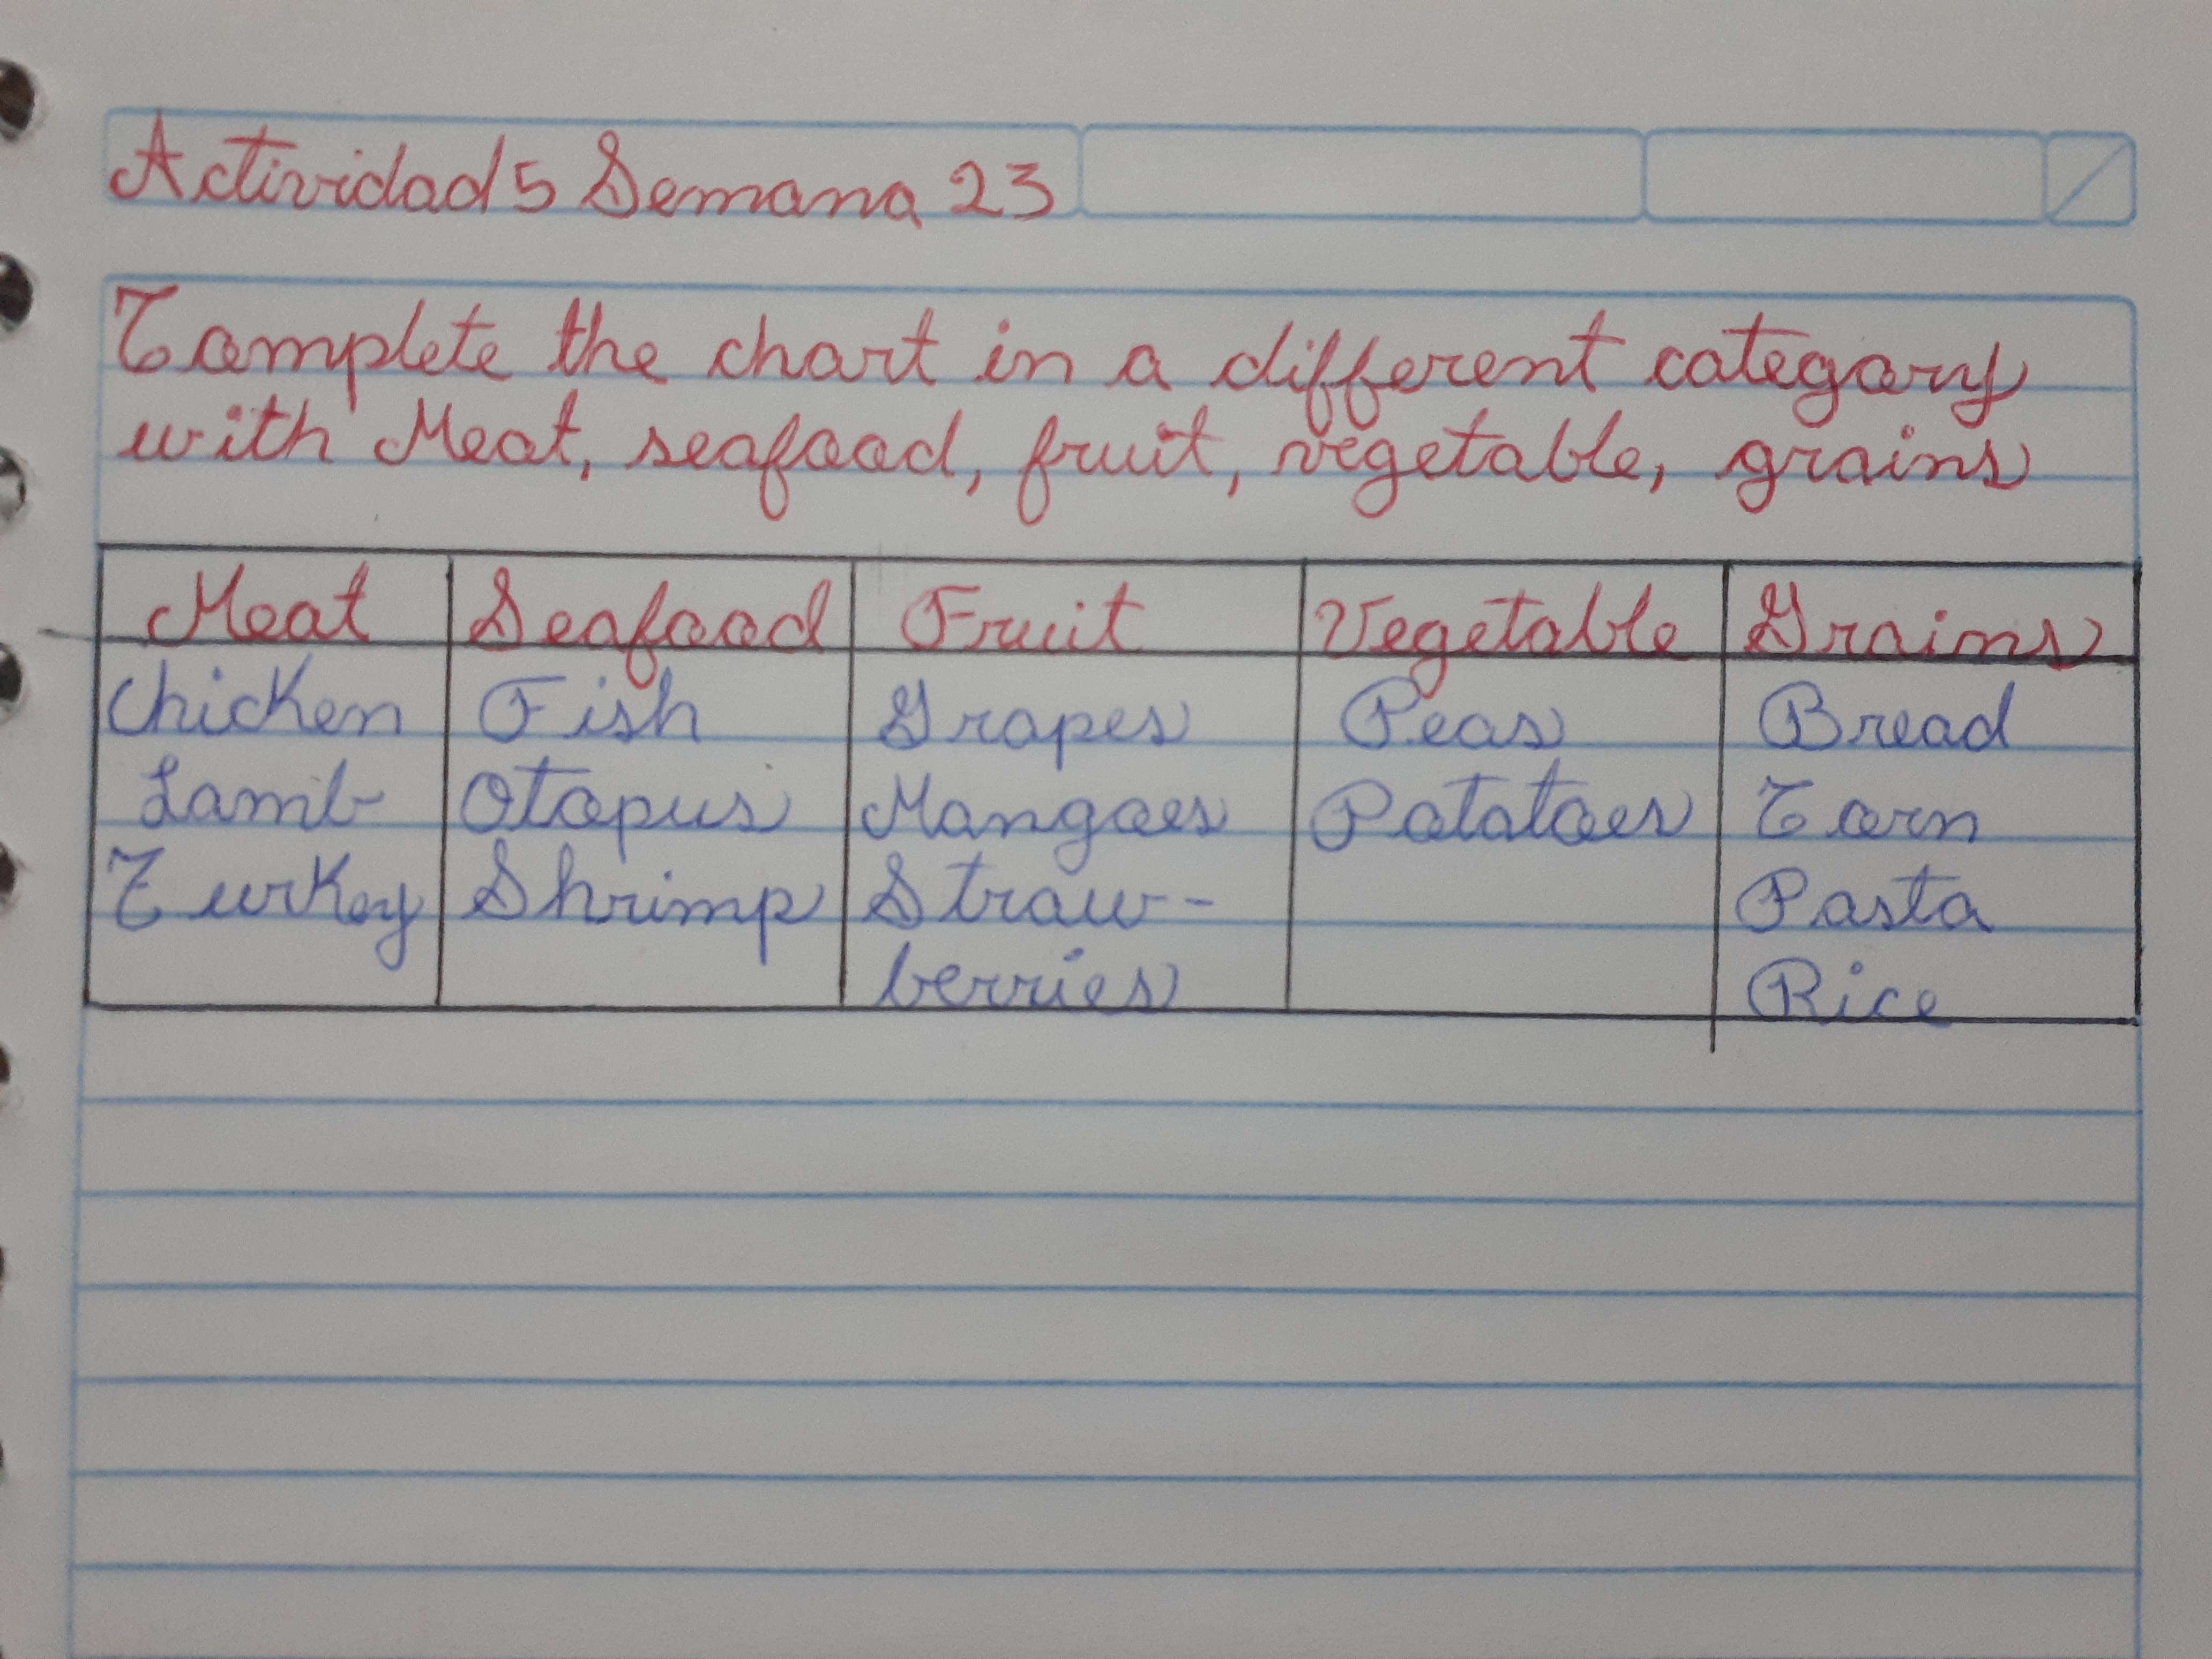 Actividad 5 Semana 23
Complete the chart in a different category
with Meat, seafood, fruit, vegetable, grains
Meat Seafood Fruit Vegetable Grains
Chicken Fish Grapes Peas Bread
Lamb Otopus Mangoes Potatoes Corn
Turkey Shrimp Straw- Pasta
berries Rice